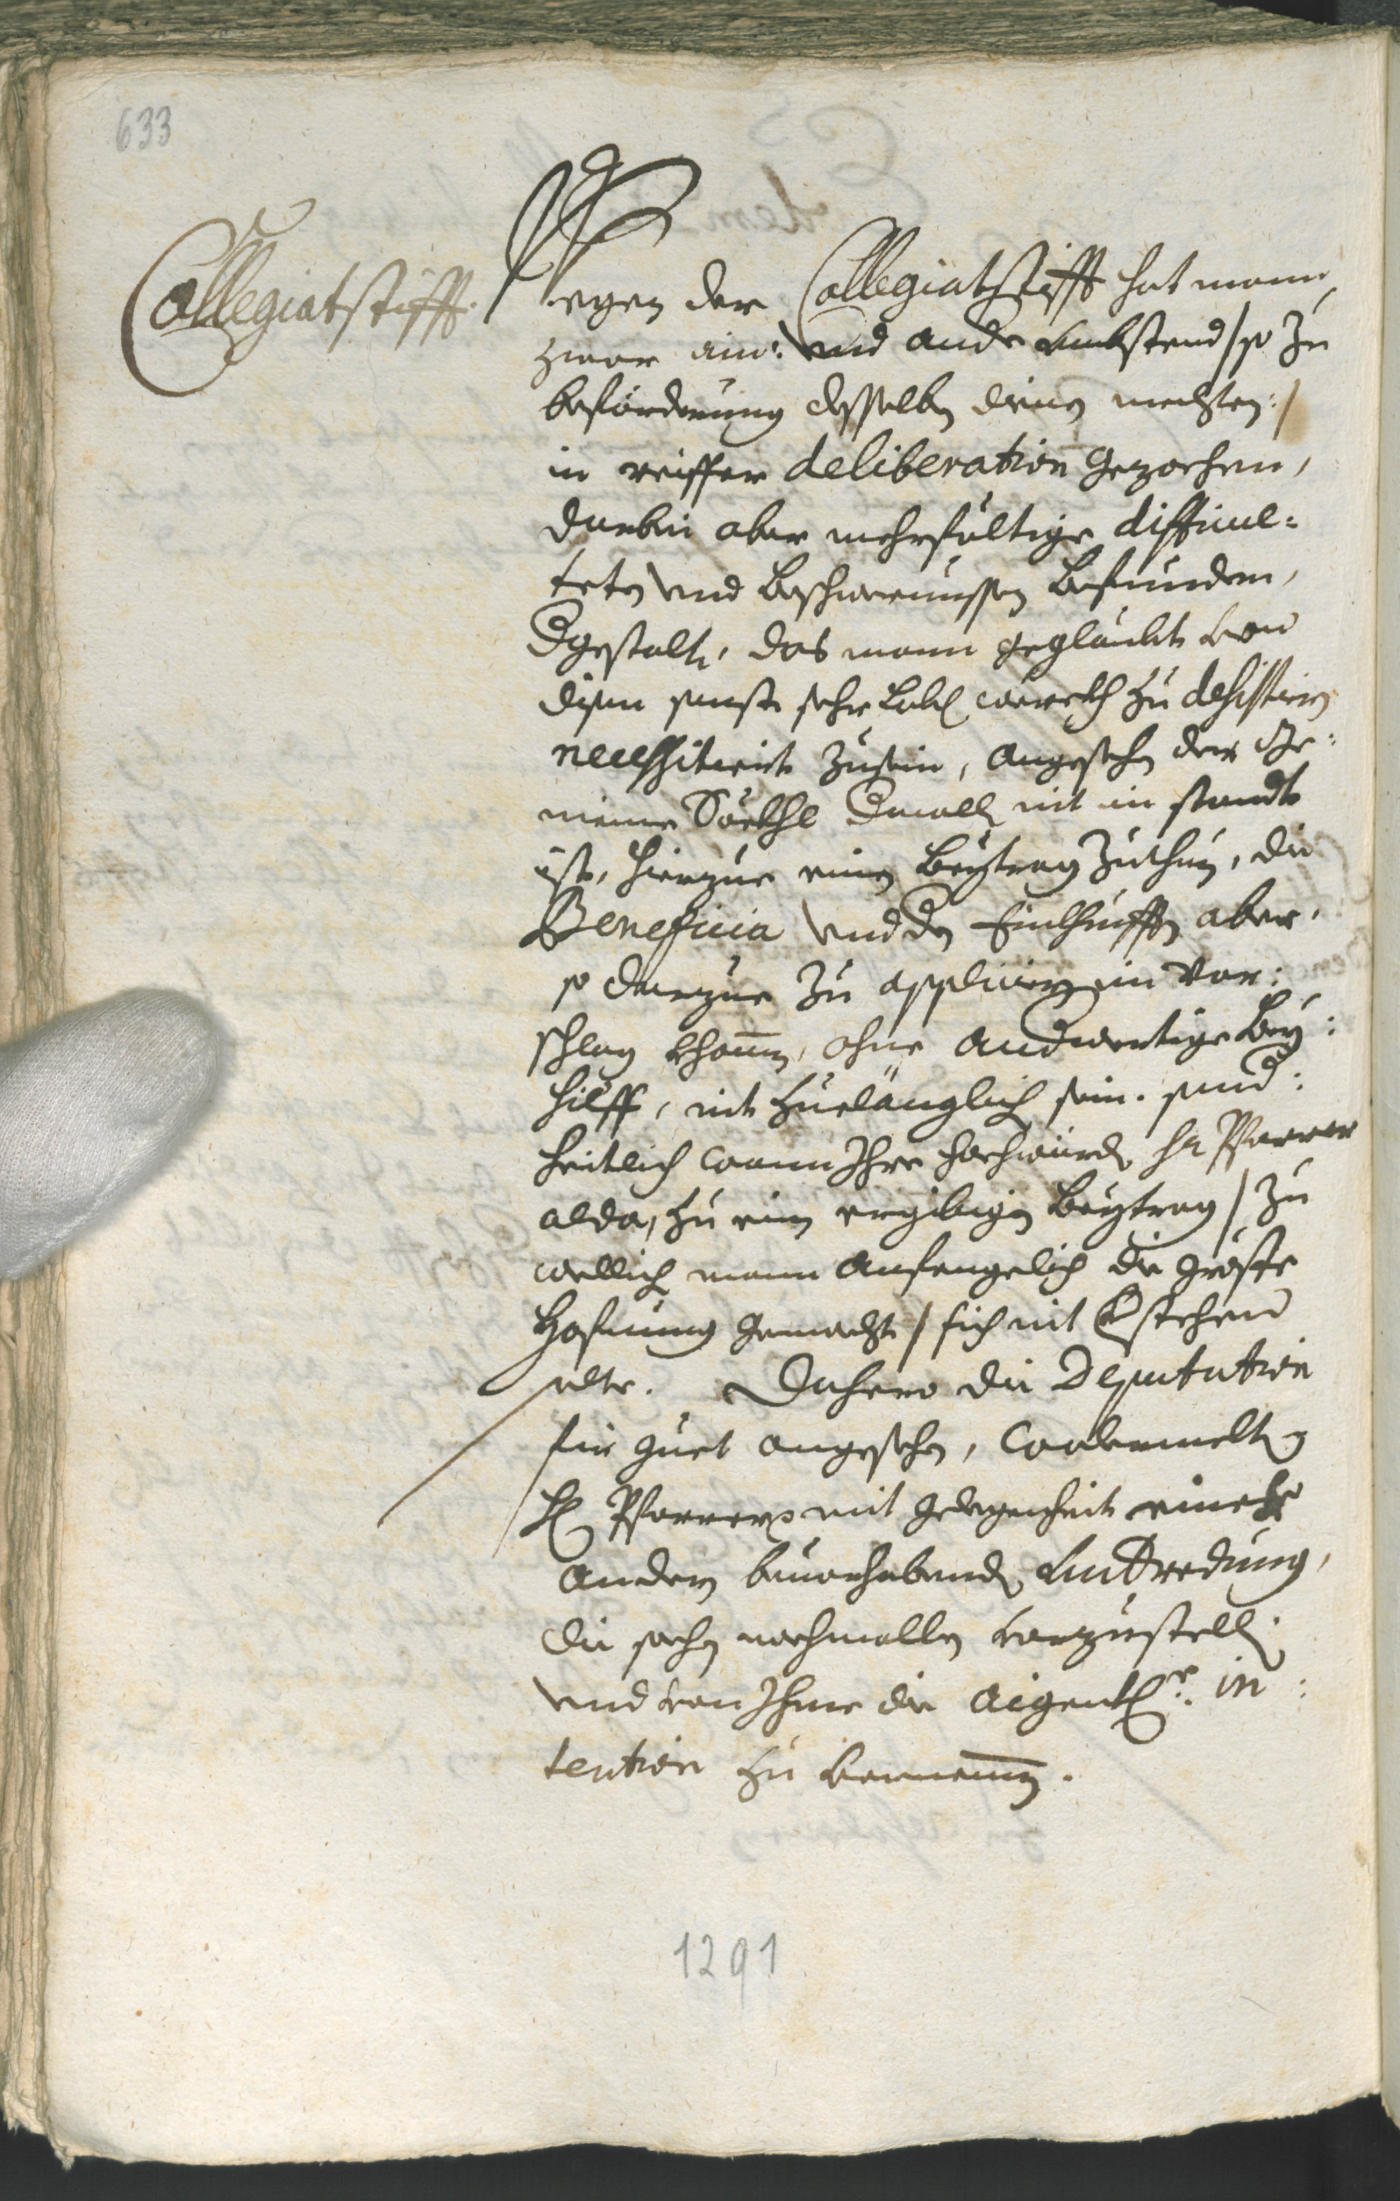 633
Collegiatstifft.
Wegen der Collegiatstifft hat mann
zwar ain: und andr umbstend /so zu
beförderung desselben dienen mechten:/
in reiffer deliberation gezochen,
darbei aber mehrfältige difficul=
teten und beschwernussen befunden,
dgestalt, das mann geglaubt von
disem sonst sehr lobl werkh zu desistiern
necessitiert zusein, angesehen der Ge:
meine Söckhl dmalln nit in standt
ist, hierzue einen beytrag zuthun, die
Beneficia und den Einkhunfften aber,
so darzue zu appliciern im vor:
schlag khomen, ohne andwertige bey:
hilff, nit zuelänglich sein. sond:
heitlich wann Ihre hochwürd hr Pfarrer
alda, zu eim ergibigen beytrag / zu
wellich mann anfengelich die gröste
Hofnung gemacht / sich nit vstehen
solte. Dahero die Deputation
für guet angesehen, wolermelten
H Pfarrern mit gelegenheit einer
andern bevorhabenden undredung,
die sachen nochmallen vorzustelln
und von Ihme die aigentle. in:
tention zu vernemen.
1291